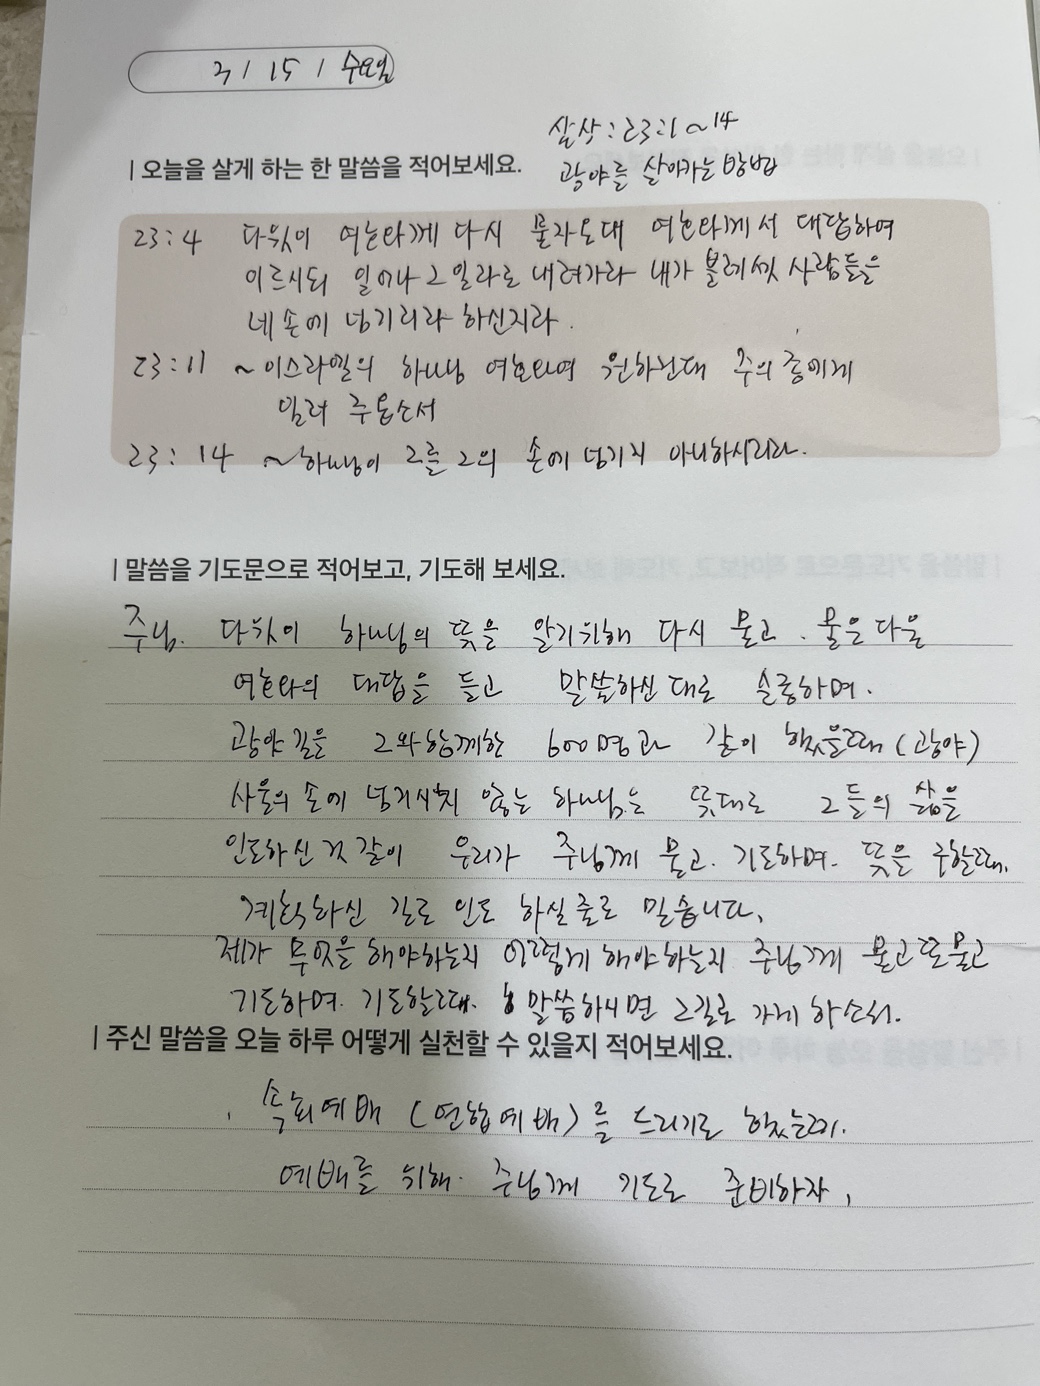 3 / 15 / 수요일
삼상 : 23:1~14
| 오늘을 살게 하는 한 말씀을 적어보세요.
광야를 살아가는 방법
23:4 다윗이 여호와께 다시 묻자온대 여호와께서 대답하여
이르시되 일어나 그일라로 내려가라 내가 블레셋 사람들을
네 손에 넘기리라 하신지라.
23:11 ~이스라엘의 하나님 여호와여 원하건대 주의 종에게
일러 주옵소서
23:14 ~하나님이 그를 그의 손에 넘기지 아니하시리라.
| 말씀을 기도문으로 적어보고, 기도해 보세요.
주님. 다윗이 하나님의 뜻을 알기위해 다시 묻고. 물은다음
여호와의 대답을 듣고 말씀하신대로 순종하며.
광야길을 그와함께한 600명과 같이 했을때 (광야)
사울의 손에 넘기시지 않는 하나님은 뜻대로 그들의 삶을
인도하신것 같이 우리가 주님께 묻고. 기도하며. 뜻을 구할때.
계획하신 길로 인도 하실줄로 믿습니다.
제가 무엇을 해야하는지 어떻게 해야하는지 주님께 묻고또묻고
기도하며. 기도할때. 말씀하시면 그길로 가게 하소서.
| 주신 말씀을 오늘 하루 어떻게 실천할 수 있을지 적어보세요.
. 속회예배 (연합예배)를 드리기로 했는데.
예배를 위해. 주님께 기도로 준비하자.